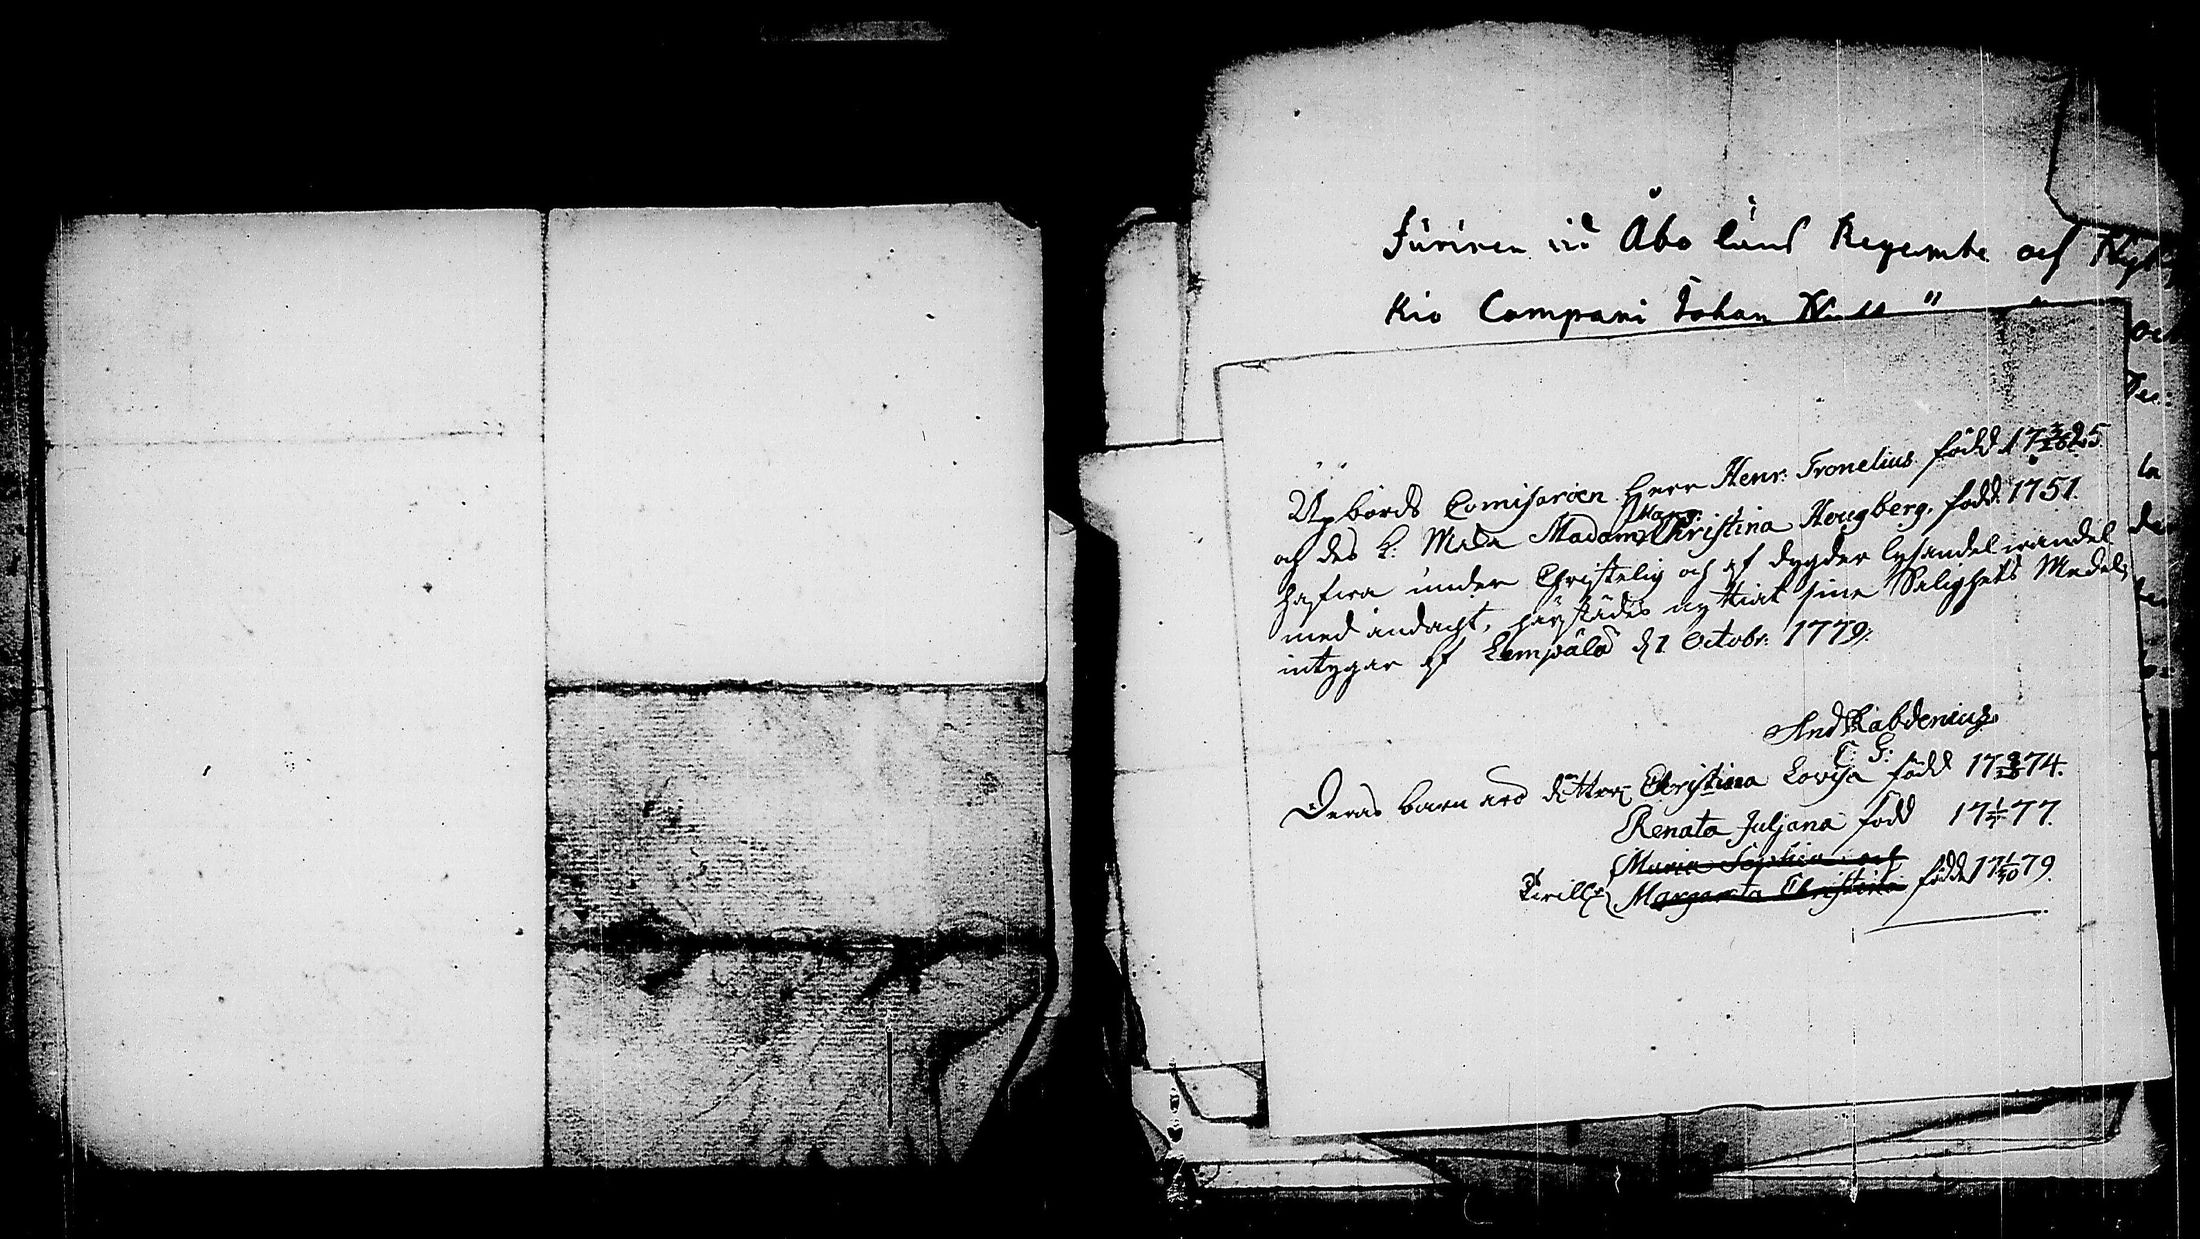 Furiren vid Åbo läns Regemte och Nyky
Kio Compani Johan
Upbörds Comisarien Herr Henr: Tronelius född 17 25.
och des k: Maka Madame Marg: Christina Hougberg, född 1751.
hafwa under Christelig och af dygder lysande wandel
med andagt, härstädes nyttiat sina Salighets Medel,
intygar af Lempälä d. 1 Octobr: 1779.
And Rabdenius.
C. G:
Deras barn äro döttrar Christina Lovisa född 17 9/23 74.
Renata Juljana född 17 1/7 77.
Maria Sophia och
Tvill: Margareta Christina födde 17 1/10 79.